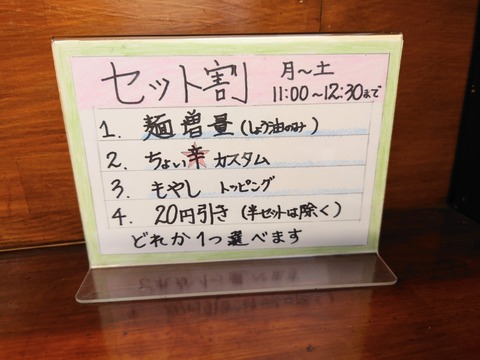 セット割 月〜土
11:00〜12:30まで
1. 麺増量(しょう油のみ)
2. ちょい辛カスタム
3. もやし トッピング
4. 20円引き(半セットは除く)
どれか1つ選べます